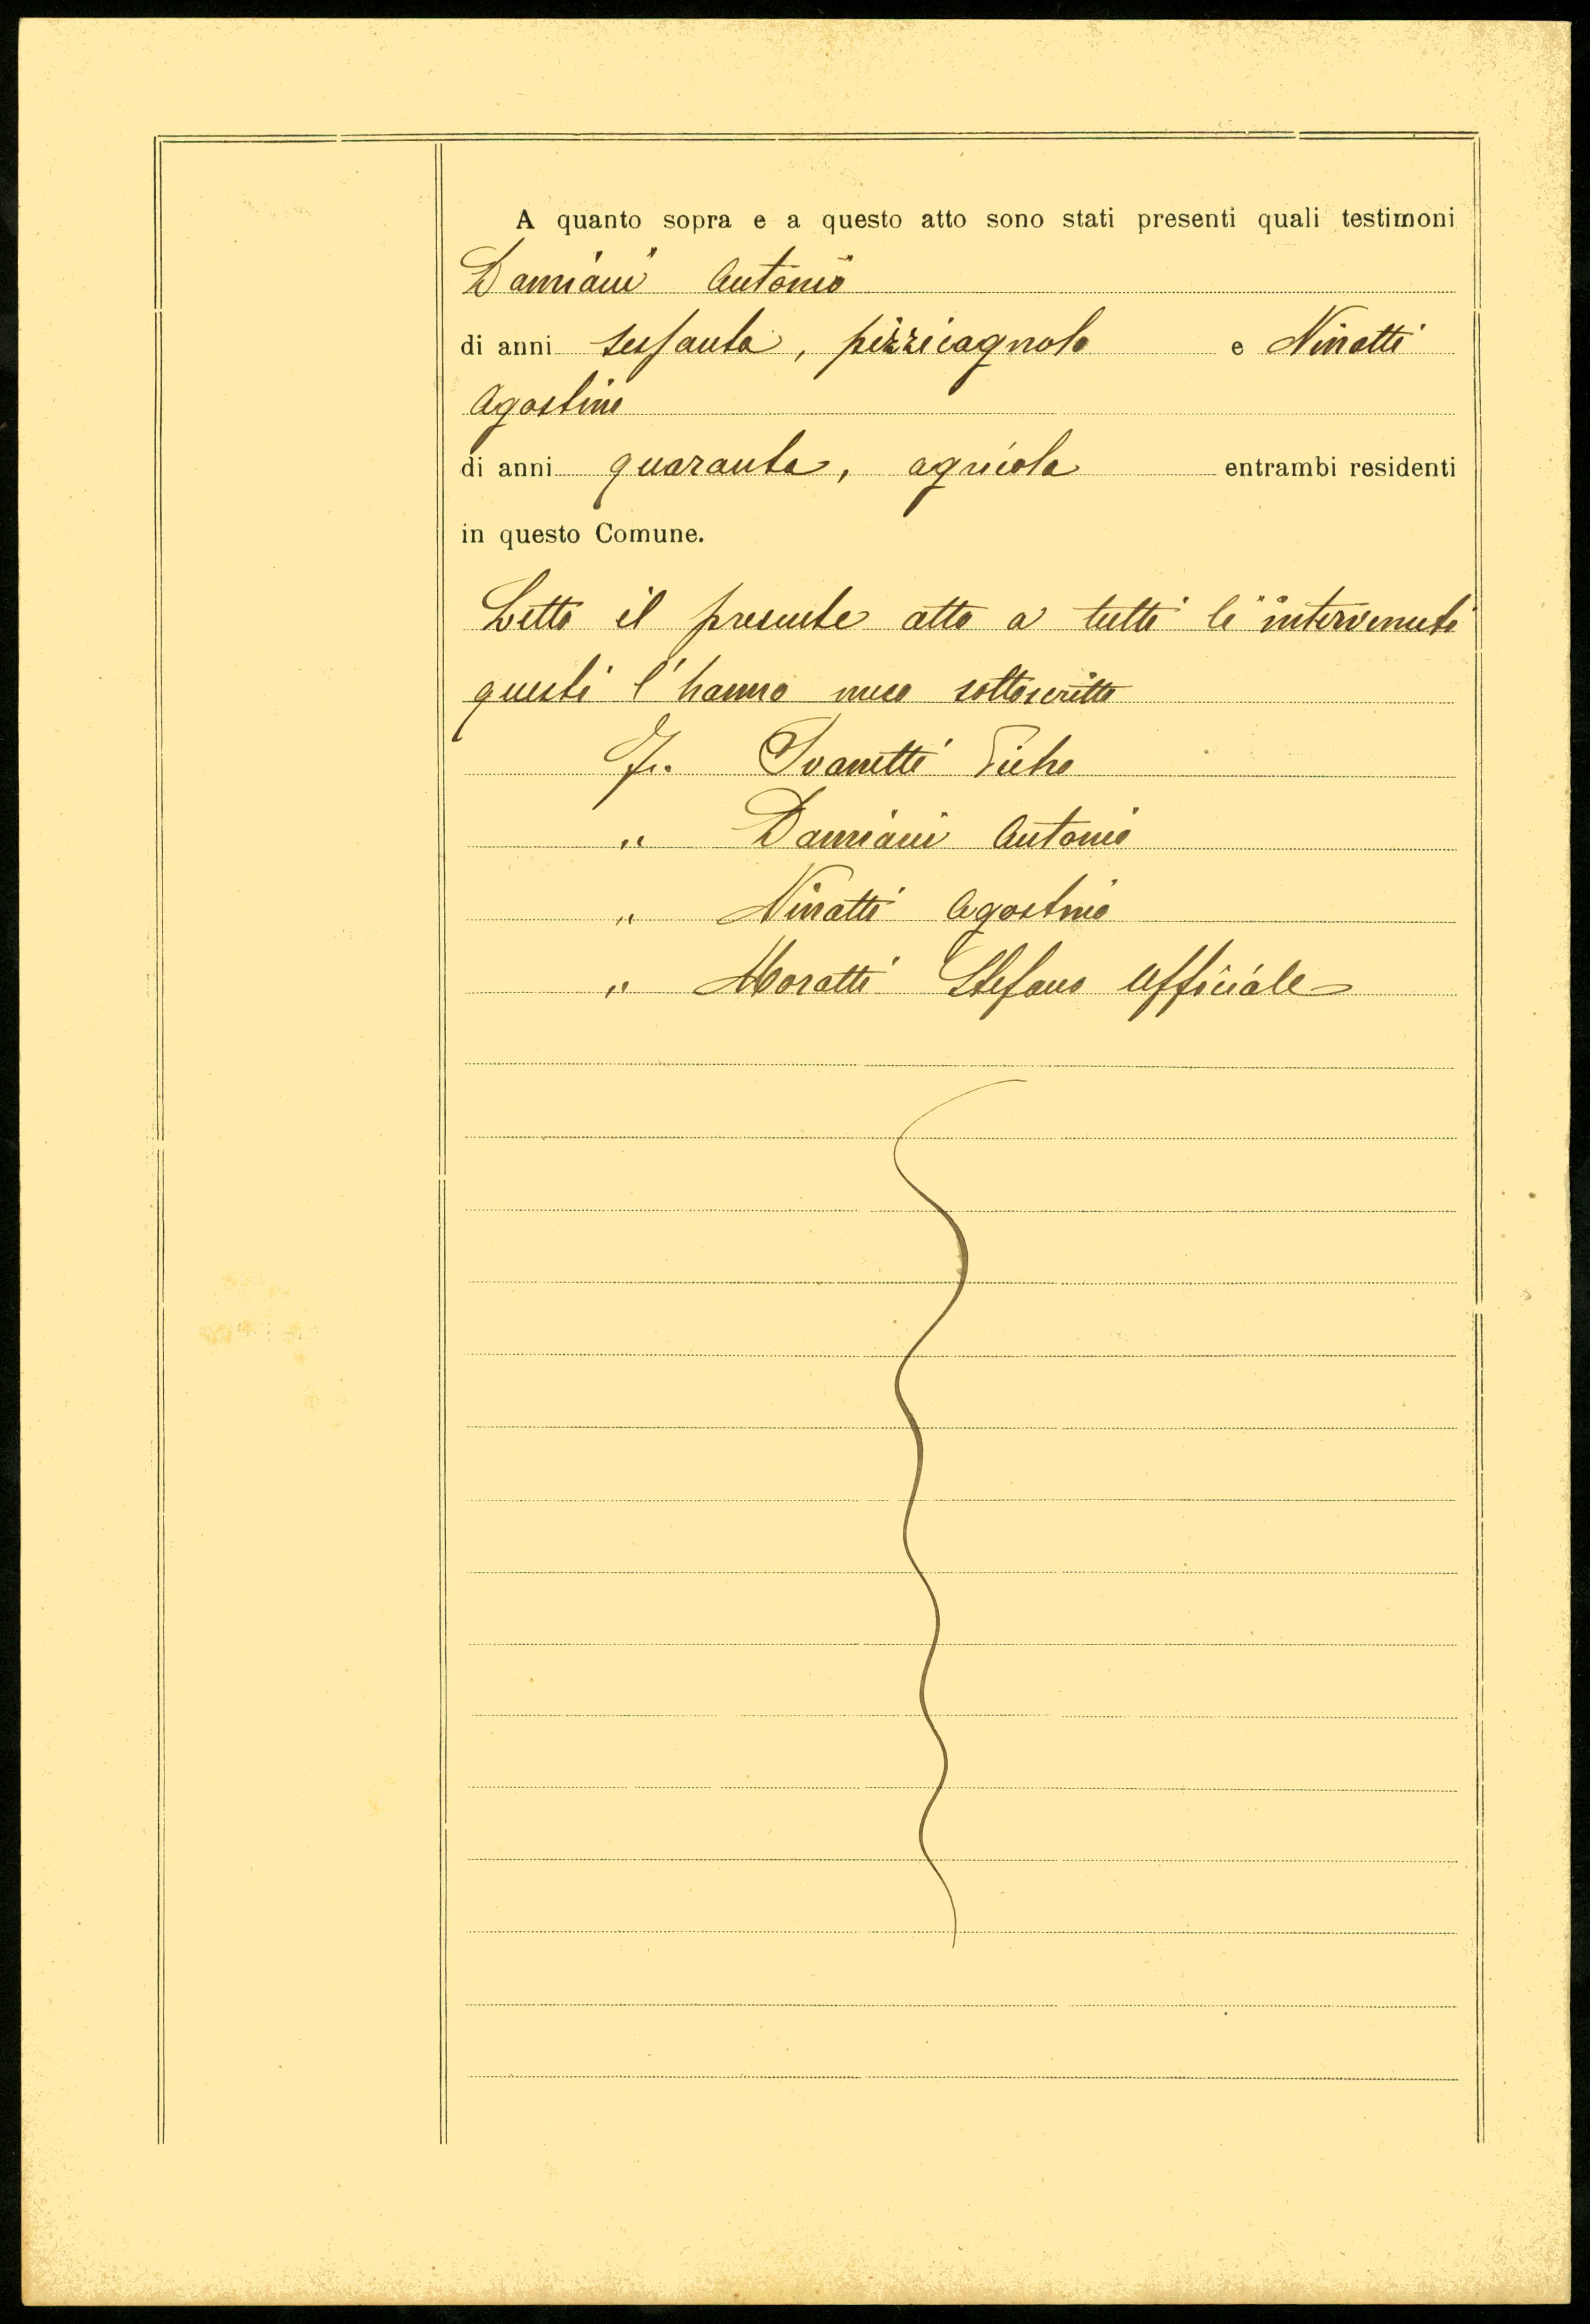 A quanto sopra e a questo atto sono stati presenti quali testimoni
Damiani Antonio
di anni sessanta, pizzicagnolo e Ninatti
Agostino
di anni quaranta, agricola entrambi residenti
in questo Comune.
Letto il presente atto a tutti li intervenuti
questi l'hanno meco sottoscritto
Fr. Ivanetti Pietro
" Damiani Antonio
" Ninatti Agostino
" Moratti Stefano Ufficiale